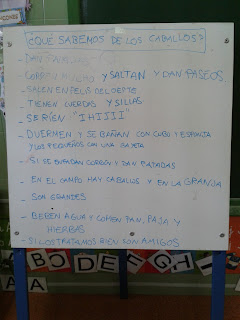 ¿QUÉ SABEMOS DE LOS CABALLOS?
- DAN
- CORREN MUCHO Y SALTAN Y DAN PASEOS
- SALEN EN PELIS DEL OESTE
- TIENEN CUERDAS Y SILLAS
- SE RÍEN "IHIJJJ"
- DUERMEN Y SE BAÑAN CON CUBO Y ESPONJA
Y LOS PEQUEÑOS CON UNA
- SI SE ENFADAN CORREN Y DAN PATADAS
- EN EL CAMPO HAY CABALLOS Y EN LA GRANJA
- SON GRANDES
- BEBEN AGUA Y COMEN PAN, PAJA Y
HIERBAS
- SI LOS TRATAMOS BIEN SON AMIGOS
B D E F G H I
A A